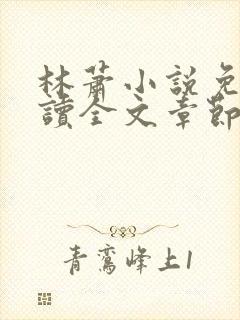 林蕭小說免
讀全文章節
青鸞峰上1